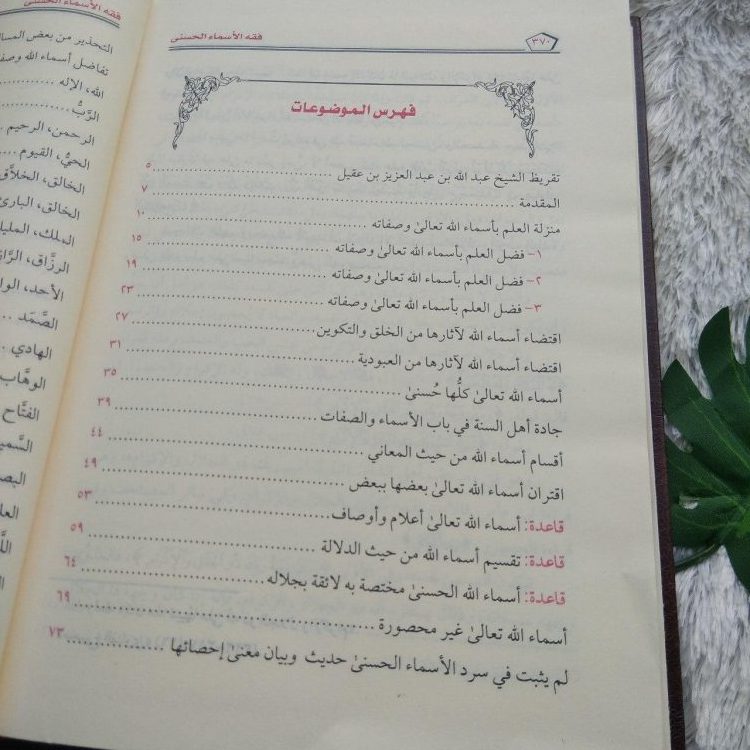 ٣٧٠
فقه الأسماء الحسنى
فهرس الموضوعات
تقريظ الشيخ عبد الله بن عبد العزيز بن عقيل ............ ٥
المقدمة ............ ٧
منزلة العلم بأسماء الله تعالىٰ وصفاته ............ ١٠
١- فضل العلم بأسماء الله تعالىٰ وصفاته ............ ١٥
٢- فضل العلم بأسماء الله تعالىٰ وصفاته ............ ١٩
٣- فضل العلم بأسماء الله تعالىٰ وصفاته ............ ٢٣
اقتضاء أسماء الله لآثارها من الخلق والتكوين ............ ٢٧
اقتضاء أسماء الله لآثارها من العبودية ............ ٣١
أسماء الله تعالىٰ كلُّها حُسنىٰ ............ ٣٥
جادة أهل السنة في باب الأسماء والصفات ............ ٣٩
أقسام أسماء الله من حيث المعاني ............ ٤٤
اقتران أسماء الله تعالىٰ بعضها ببعض ............ ٤٩
قاعدة: أسماء الله تعالىٰ أعلام وأوصاف ............ ٥٣
قاعدة: تقسيم أسماء الله من حيث الدلالة ............ ٥٩
قاعدة: أسماء الله الحسنىٰ مختصة به لائقة بجلاله ............ ٦٤
أسماء الله تعالىٰ غير محصورة ............ ٦٩
لم يثبت في سرد الأسماء الحسنىٰ حديث وبيان معنى إحصائها ............ ٧٣
فقه الأسماء الحسنى
التحذير من بعض
تفاضل أسماء الله
الله، الإله ............
الرَّبُّ ............
الرحمن، الرحيم
الحيُّ، القيوم ....
الخالق، الخلاَّق
الخالق، البارئ
الملك، المليك
الرزَّاق،
الأحد،
الصَّمَد ....
الهادي ....
الوهَّاب
الفتَّاح